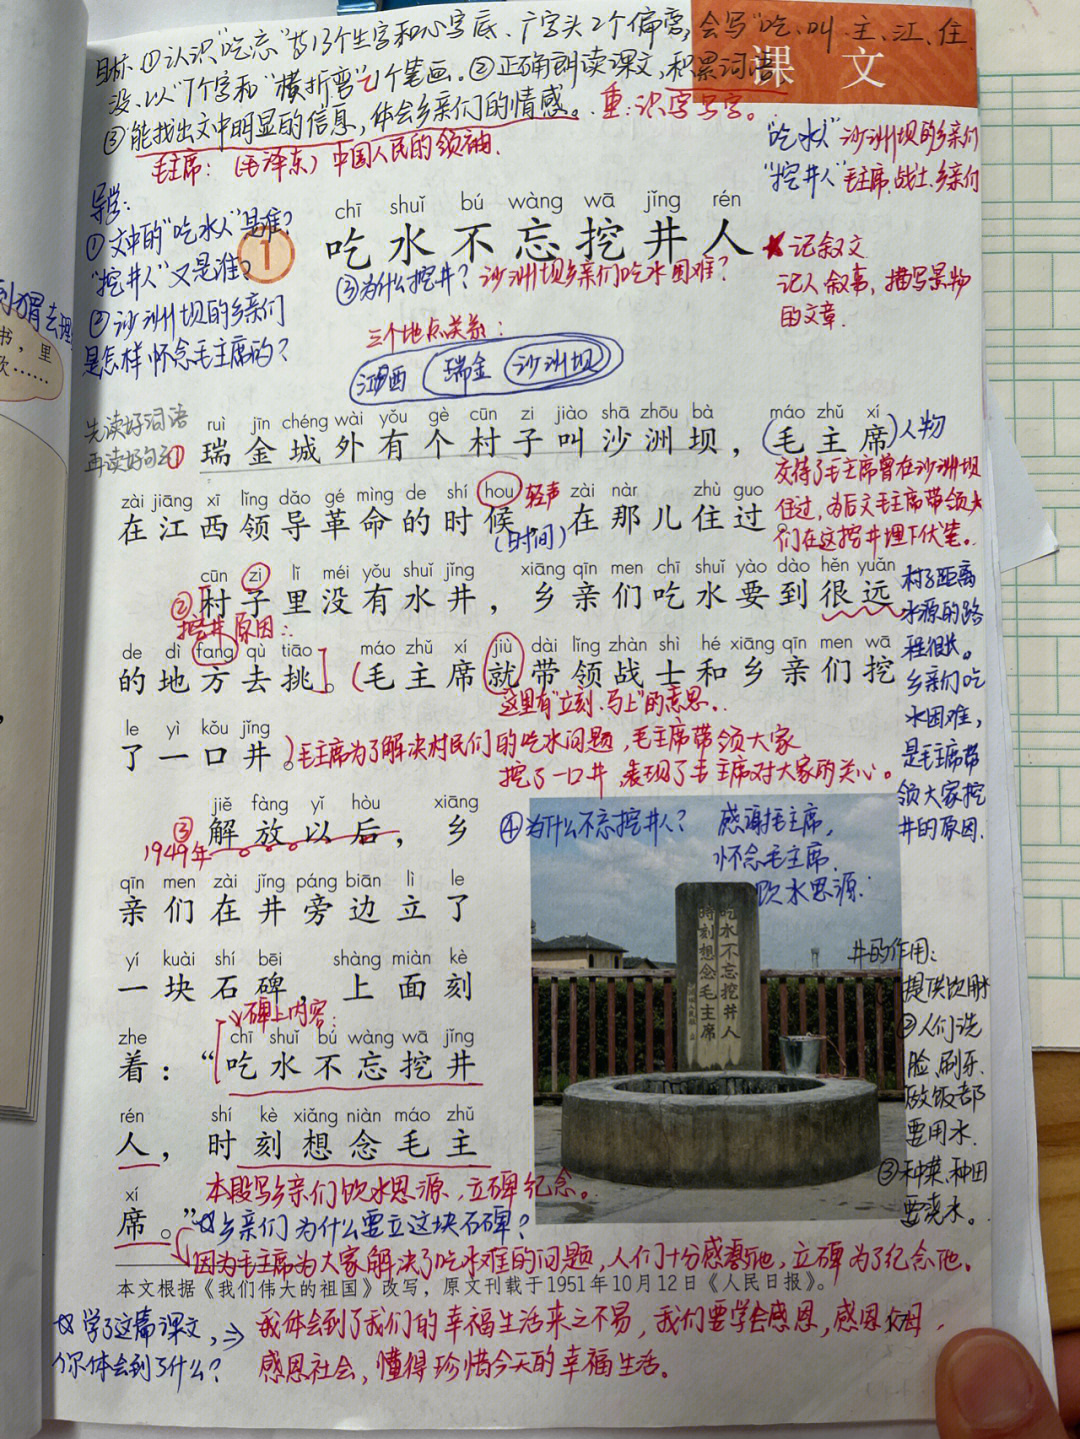 目标:①认识"吃忘"等13个生字和心字底、广字头2个偏旁,会写"吃、叫、主、江、住、
没、以"7个字和"横折弯"1个笔画.②正确朗读课文,积累词语
③能找出文中明显的信息,体会乡亲们的情感。 重:识字写字。
课 文
毛主席:(毛泽东)中国人民的领袖.
"吃水人"沙洲坝的乡亲们
"挖井人"毛主席、战士、乡亲们
导学:
①文中的"吃水人"是谁?
"挖井人"又是谁?
②沙洲坝的乡亲们
是怎样怀念毛主席的?
书,里
欢……
chī shuǐ bú wàng wā jǐng rén
1 吃水不忘挖井人
③为什么挖井?沙洲坝乡亲们吃水困难?
记叙文
记人叙事,描写景物
的文章.
三个地点关系:
江西 瑞金 沙洲坝
先读好词语
再读好句子
ruì jīn chéng wài yǒu gè cūn zi jiào shā zhōu bà máo zhǔ xí
①瑞金城外有个村子叫沙洲坝,毛主席
人物
交待了毛主席曾在沙洲坝
住过,为后文毛主席带领大
们在这挖井埋下伏笔。
zài jiāng xī lǐng dǎo gé mìng de shí hou zài nàr zhù guo
轻声
在江西领导革命的时候,在那儿住过。
(时间)
cūn zi lǐ méi yǒu shuǐ jǐng xiāng qīn men chī shuǐ yào dào hěn yuǎn
②村子里没有水井,乡亲们吃水要到很远
挖井原因:
村子距离
水源的路
程很长。
乡亲们吃
水困难,
是毛主席带
领大家挖
井的原因.
de dì fang qù tiāo máo zhǔ xí jiù dài lǐng zhàn shì hé xiāng qīn men wā
的地方去挑。毛主席就带领战士和乡亲们挖
这里有"立刻、马上"的意思。
le yì kǒu jǐng
了一口井。
毛主席为了解决村民们的吃水问题,毛主席带领大家
挖了一口井,表现了毛主席对大家的关心。
jiě fàng yǐ hòu xiāng
③解放以后,乡
1949年
④为什么不忘挖井人?
感谢毛主席,
怀念毛主席.
饮水思源.
qīn men zài jǐng páng biān lì le
亲们在井旁边立了
yí kuài shí bēi shàng miàn kè
一块石碑,上面刻
碑上内容:
zhe chī shuǐ bú wàng wā jǐng
着:"吃水不忘挖井
rén shí kè xiǎng niàn máo zhǔ
人,时刻想念毛主
xí
席。"
吃水不忘挖井人
時刻想念毛主席
井的作用:
提供饮用水
②人们洗
脸、刷牙、
做饭都
要用水.
③种菜、种田
要浇水。
本段写乡亲们饮水思源,立碑纪念。
乡亲们为什么要立这块石碑?
因为毛主席为大家解决了吃水难的问题,人们十分感激他,立碑为了纪念他。
本文根据《我们伟大的祖国》改写,原文刊载于1951年10月12日《人民日报》。
学了这篇课文,
你体会到了什么?
我体会到了我们的幸福生活来之不易,我们要学会感恩,感恩父母,
感恩社会,懂得珍惜今天的幸福生活。